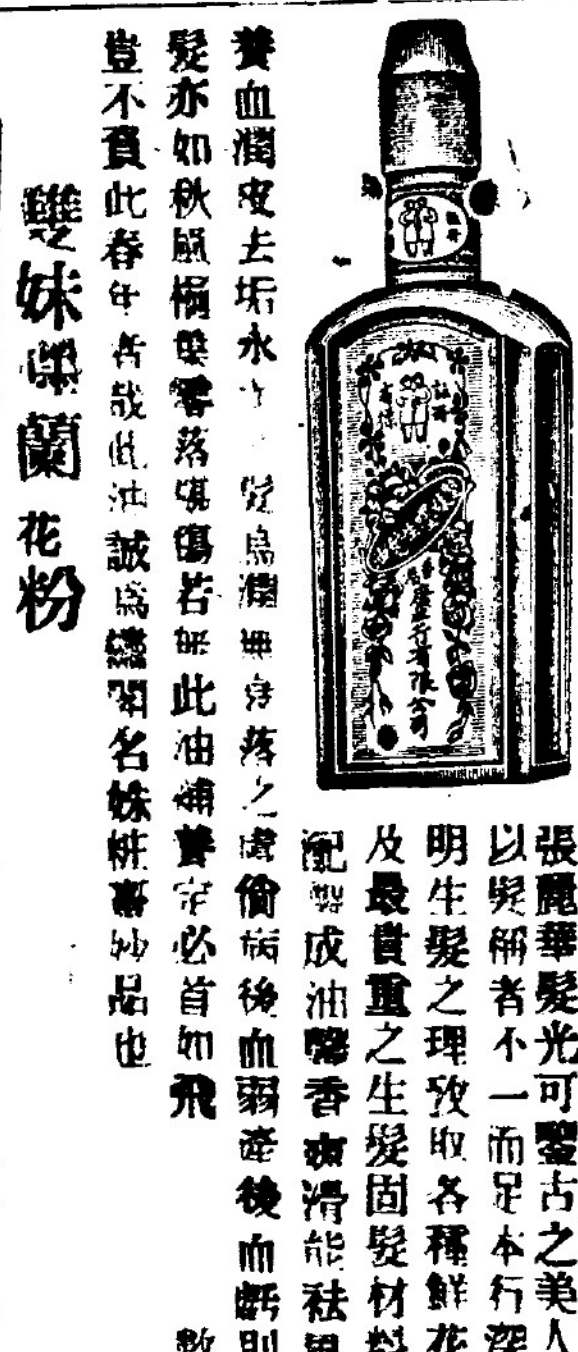 張麗華髮光可鑒古之美人
以髮稱者不一而足本行深
明生髮之理攷取各種鮮花
及最貴重之生髮固髮材料
配製成油馨香爽滑能祛
養血潤皮去垢永髮烏潤無落之虞倘病後血弱產後血虧則
髮亦如秋風梧葉零落堪傷若無此油補養定必首如飛
豈不負此春年者哉此油誠為繡閣名姝粧奩妙品也
雙妹嚜蘭花粉
廣生行有限公司